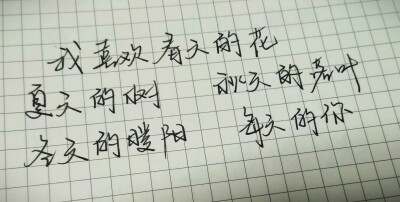 我喜欢春天的花
夏天的树 秋天的落叶
冬天的暖阳 每天的你